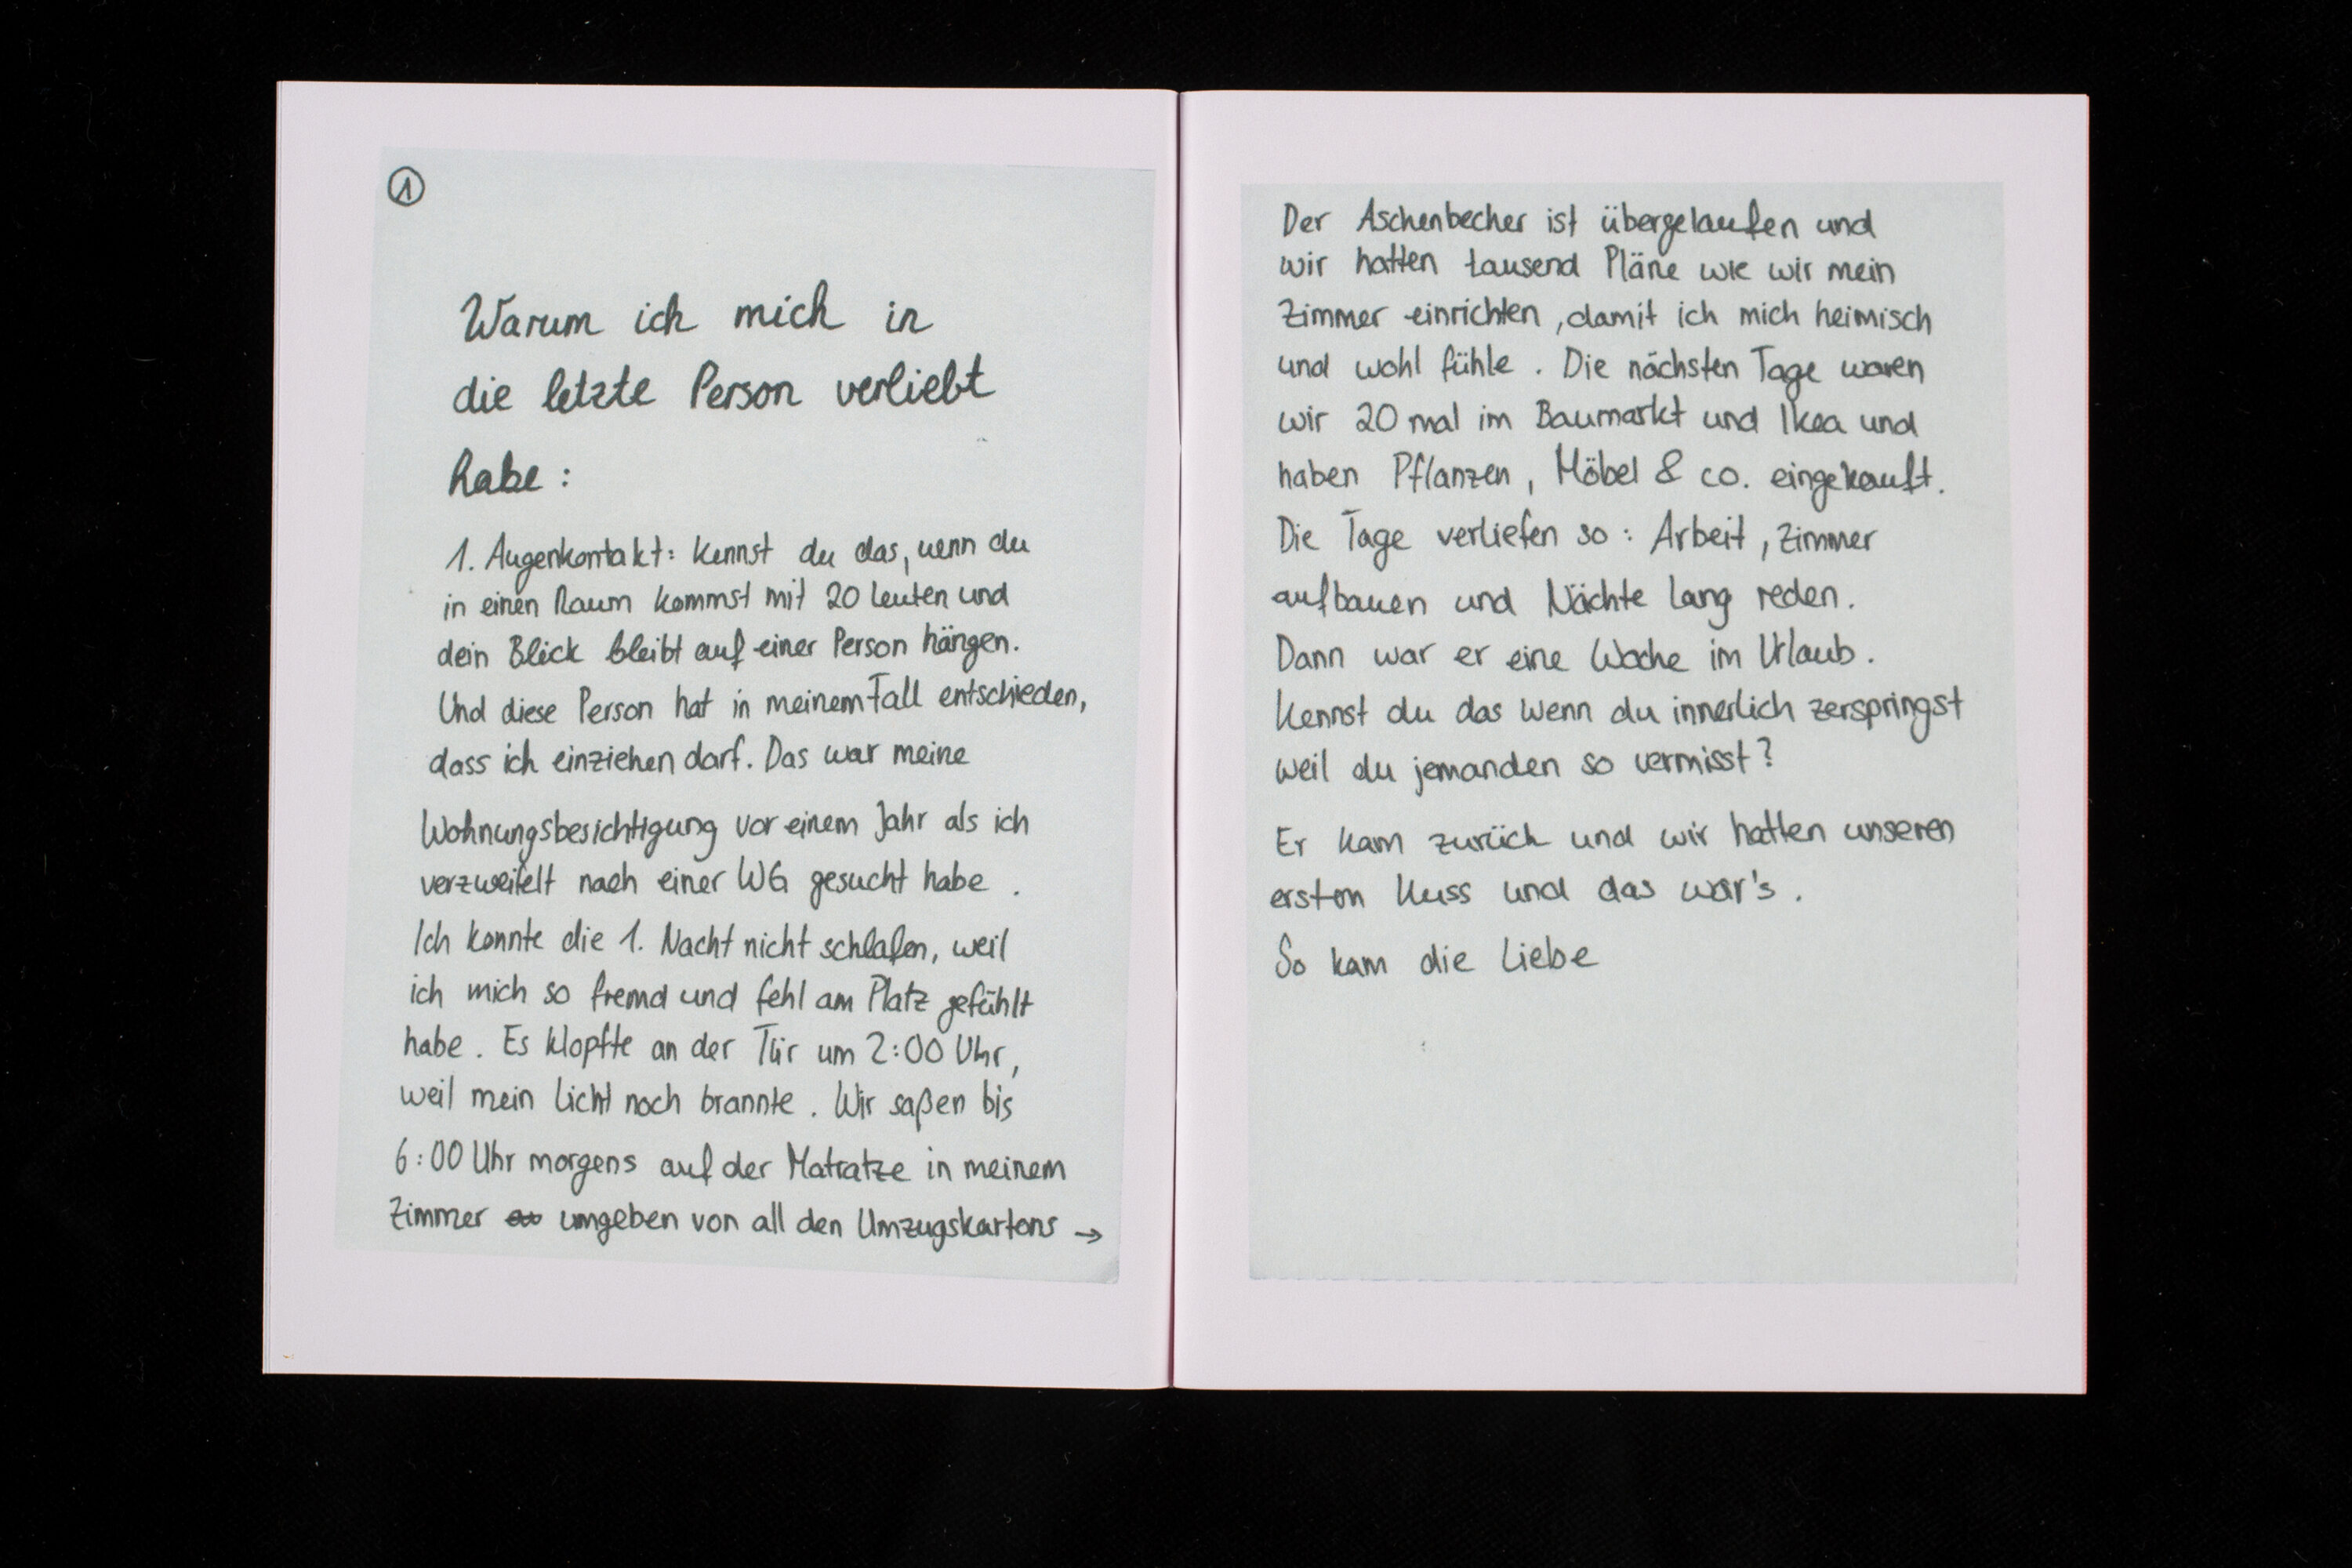 1
Warum ich mich in
die letzte Person verliebt
habe:
1. Augenkontakt: Kennst du das, wenn du
in einen Raum kommst mit 20 Leuten und
dein Blick bleibt auf einer Person hängen.
Und diese Person hat in meinem Fall entschieden,
dass ich einziehen darf. Das war meine
Wohnungsbesichtigung vor einem Jahr als ich
verzweifelt nach einer WG gesucht habe.
Ich konnte die 1. Nacht nicht schlafen, weil
ich mich so fremd und fehl am Platz gefühlt
habe. Es klopfte an der Tür um 2:00 Uhr,
weil mein Licht noch brannte. Wir saßen bis
6:00 Uhr morgens auf der Matratze in meinem
Zimmer umgeben von all den Umzugskartons →
Der Aschenbecher ist übergelaufen und
wir hatten tausend Pläne wie wir mein
Zimmer einrichten, damit ich mich heimisch
und wohl fühle. Die nächsten Tage waren
wir 20 mal im Baumarkt und Ikea und
haben Pflanzen, Möbel & co. eingekauft.
Die Tage verliefen so: Arbeit, Zimmer
aufbauen und Nächte lang reden.
Dann war er eine Woche im Urlaub.
Kennst du das wenn du innerlich zerspringst
weil du jemanden so vermisst?
Er kam zurück und wir hatten unseren
ersten Kuss und das war's.
So kam die Liebe